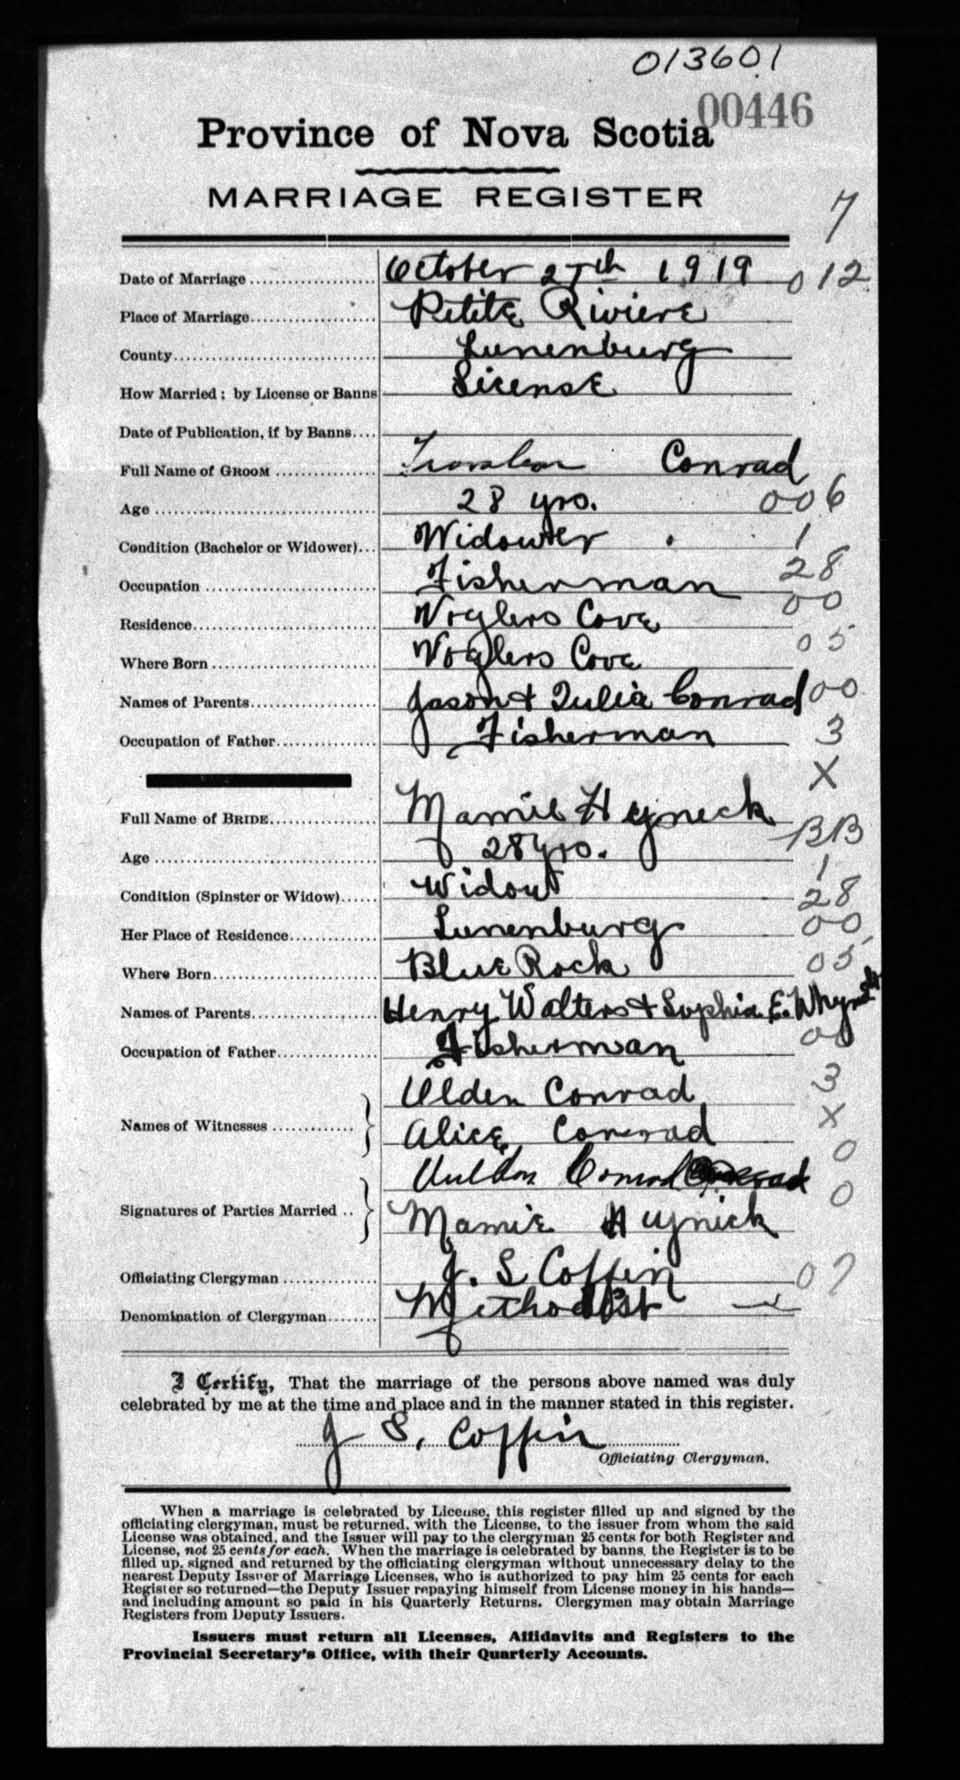 013601
00446
Province of Nova Scotia
MARRIAGE REGISTER
7
Date of Marriage October 27th 1919 012
Place of Marriage Petite Riviere
County Lunenburg
How Married; by License or Banns License
Date of Publication, if by Banns
Full Name of GROOM Conrad
Age 28 yrs. 006
Condition (Bachelor or Widower) Widower 1
Occupation Fisherman 28
Residence Voglers Cove 00
Where Born Voglers Cove 05
Names of Parents Jason & Julia Conrad 00
Occupation of Father Fisherman 3
X
Full Name of BRIDE Mamie Hyneck
BB
Age 28 yrs.
1
Condition (Spinster or Widow) Widow 28
Her Place of Residence Lunenburg 00
Where Born Blue Rock 05
Names of Parents Henry Walters & Sophia E.
Occupation of Father Fisherman 00
Names of Witnesses Alden Conrad 3
Alice Conrad X
0
Signatures of Parties Married Conrad 0
Mamie Hynick
Officiating Clergyman J. S Coffin 07
Denomination of Clergyman Methodist
I Certify, That the marriage of the persons above named was duly
celebrated by me at the time and place and in the manner stated in this register.
J S. Coffin
Officiating Clergyman.
When a marriage is celebrated by License, this register filled up and signed by the
officiating clergyman, must be returned, with the License, to the issuer from whom the said
License was obtained, and the Issuer will pay to the clergyman 25 cents for both Register and
License, not 25 cents for each. When the marriage is celebrated by banns, the Register is to be
filled up, signed and returned by the officiating clergyman without unnecessary delay to the
nearest Deputy Issuer of Marriage Licenses, who is authorized to pay him 25 cents for each
Register so returned—the Deputy Issuer repaying himself from License money in his hands—
and including amount so paid in his Quarterly Returns. Clergymen may obtain Marriage
Registers from Deputy Issuers.
Issuers must return all Licenses, Affidavits and Registers to the
Provincial Secretary's Office, with their Quarterly Accounts.